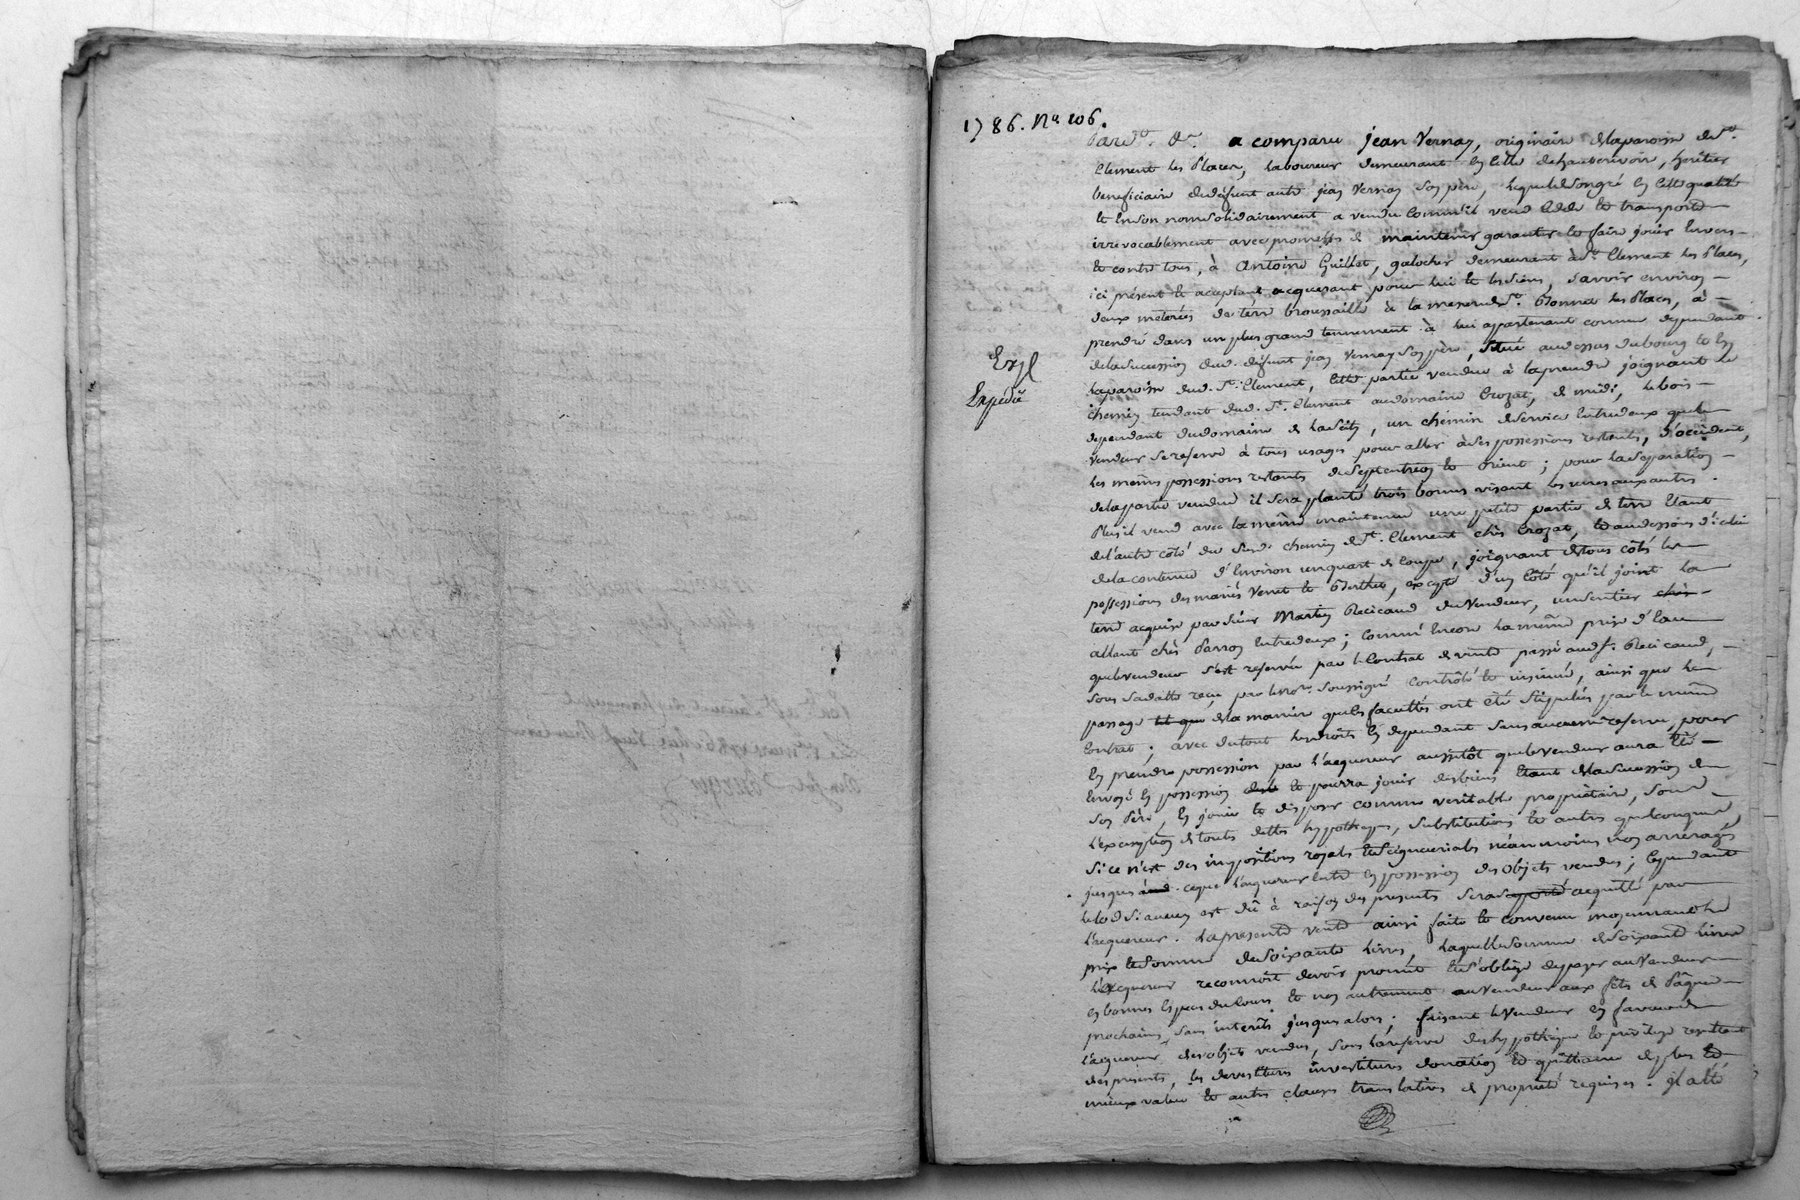 1786. No. 106.
Pard.t &.a a comparu jean Vernay, originaire de la paroisse de St.
Clement les Places, laboureur demeurant en celle de hauterivoire, heritier
beneficiaire du défunt autre jean Vernay son père, lequel de son gré en cette qualité
et en son nom solidairement a vendu comme il vend cede et transporte
irrévocablement avec promesses de maintenir garantir et faire jouir envers
et contre tous, à Antoine Guillot, galocher demeurant à St. Clement les Places,
ici présent et acceptant acquerant pour lui et les siens, Savoir environ
deux meterées de terre broussaille à la mesure de St. Bonnet les Places, à
prendre dans un plus grand tennement à lui appartenant comme dependant
de la succession dud. défunt jean Vernay son père, situé au dessus du bourg et en
Expé
Expédié
la paroisse dud. St. Clement, cette partie vendue à la prendre joignant le
chemin tendant dud. St. Clement au domaine Crozat, de midi, le bois
dependant du domaine de , un chemin de service entredeux que le
vendeur se reserve à tous usages pour aller à ses possessions restantes, d'occident,
les mêmes possessions restantes de septentrion et orient; pour la separation
de la partie vendue il sera planté trois bornes visant les unes aux autres.
Plus il vend avec la même maintenue une petite partie de terre étant
de l'autre côté du susd. chemin de St. Clement chès Crozat, et au dessous d'icelui
de la contenue d'environ un quart de coupe, joignant de tous côtés les
possessions des mariés Venet et Berthet, excepté d'un côté qu'il joint la
terre acquise par sieur Martin Recicaud du Vendeur, un sentier chès
allant chès Parron entredeux; comme encore la même prise d'eau
que le vendeur s'est reservée par le contrat de vente passé aud. sr. Recicaud,
sous sa datte reçu par le no.re soussigné contrôlé et insinué, ainsi que le
passage et que de la manière que les facultés ont été stipulées par le même
contrat; avec du tout les droits en dependant sans aucune reserve, pour
en prendre possession par l'acquereur aussitôt que le vendeur aura été
envoyé en possession et et pourra jouir des biens étant de la succession de
son père, en jouir et disposer comme veritable propriétaire, sous
l'exemption de toutes dettes hypotheques, substitutions et autres quelconques,
si ce n'est des impositions royales et seigneuriales néanmoins non arreragés
jusques à ce que l'acquereur entre en possession des objets vendus; cependant
le lod si aucun est dû à raison des presentes sera supporté acquitté par
l'acquereur. La presente vente ainsi faite et convenue moyennant le
prix et somme de soixante livres, laquelle somme de soixante livres
l'acquereur reconnoît devoir promet et s'oblige de payer au Vendeur
en bonnes especes du cours et non autrement au Vendeur aux fêtes de Pâques
prochaines sans interêts jusques alors; faisant le Vendeur en faveur de
l'acquereur des objets vendus, sous la reserve des hypotheque et privilege resultant
des presentes, les devestitures investitures donation et quittance de plus et
mieux value et autres clauses translatives de propriété requises. Il a été